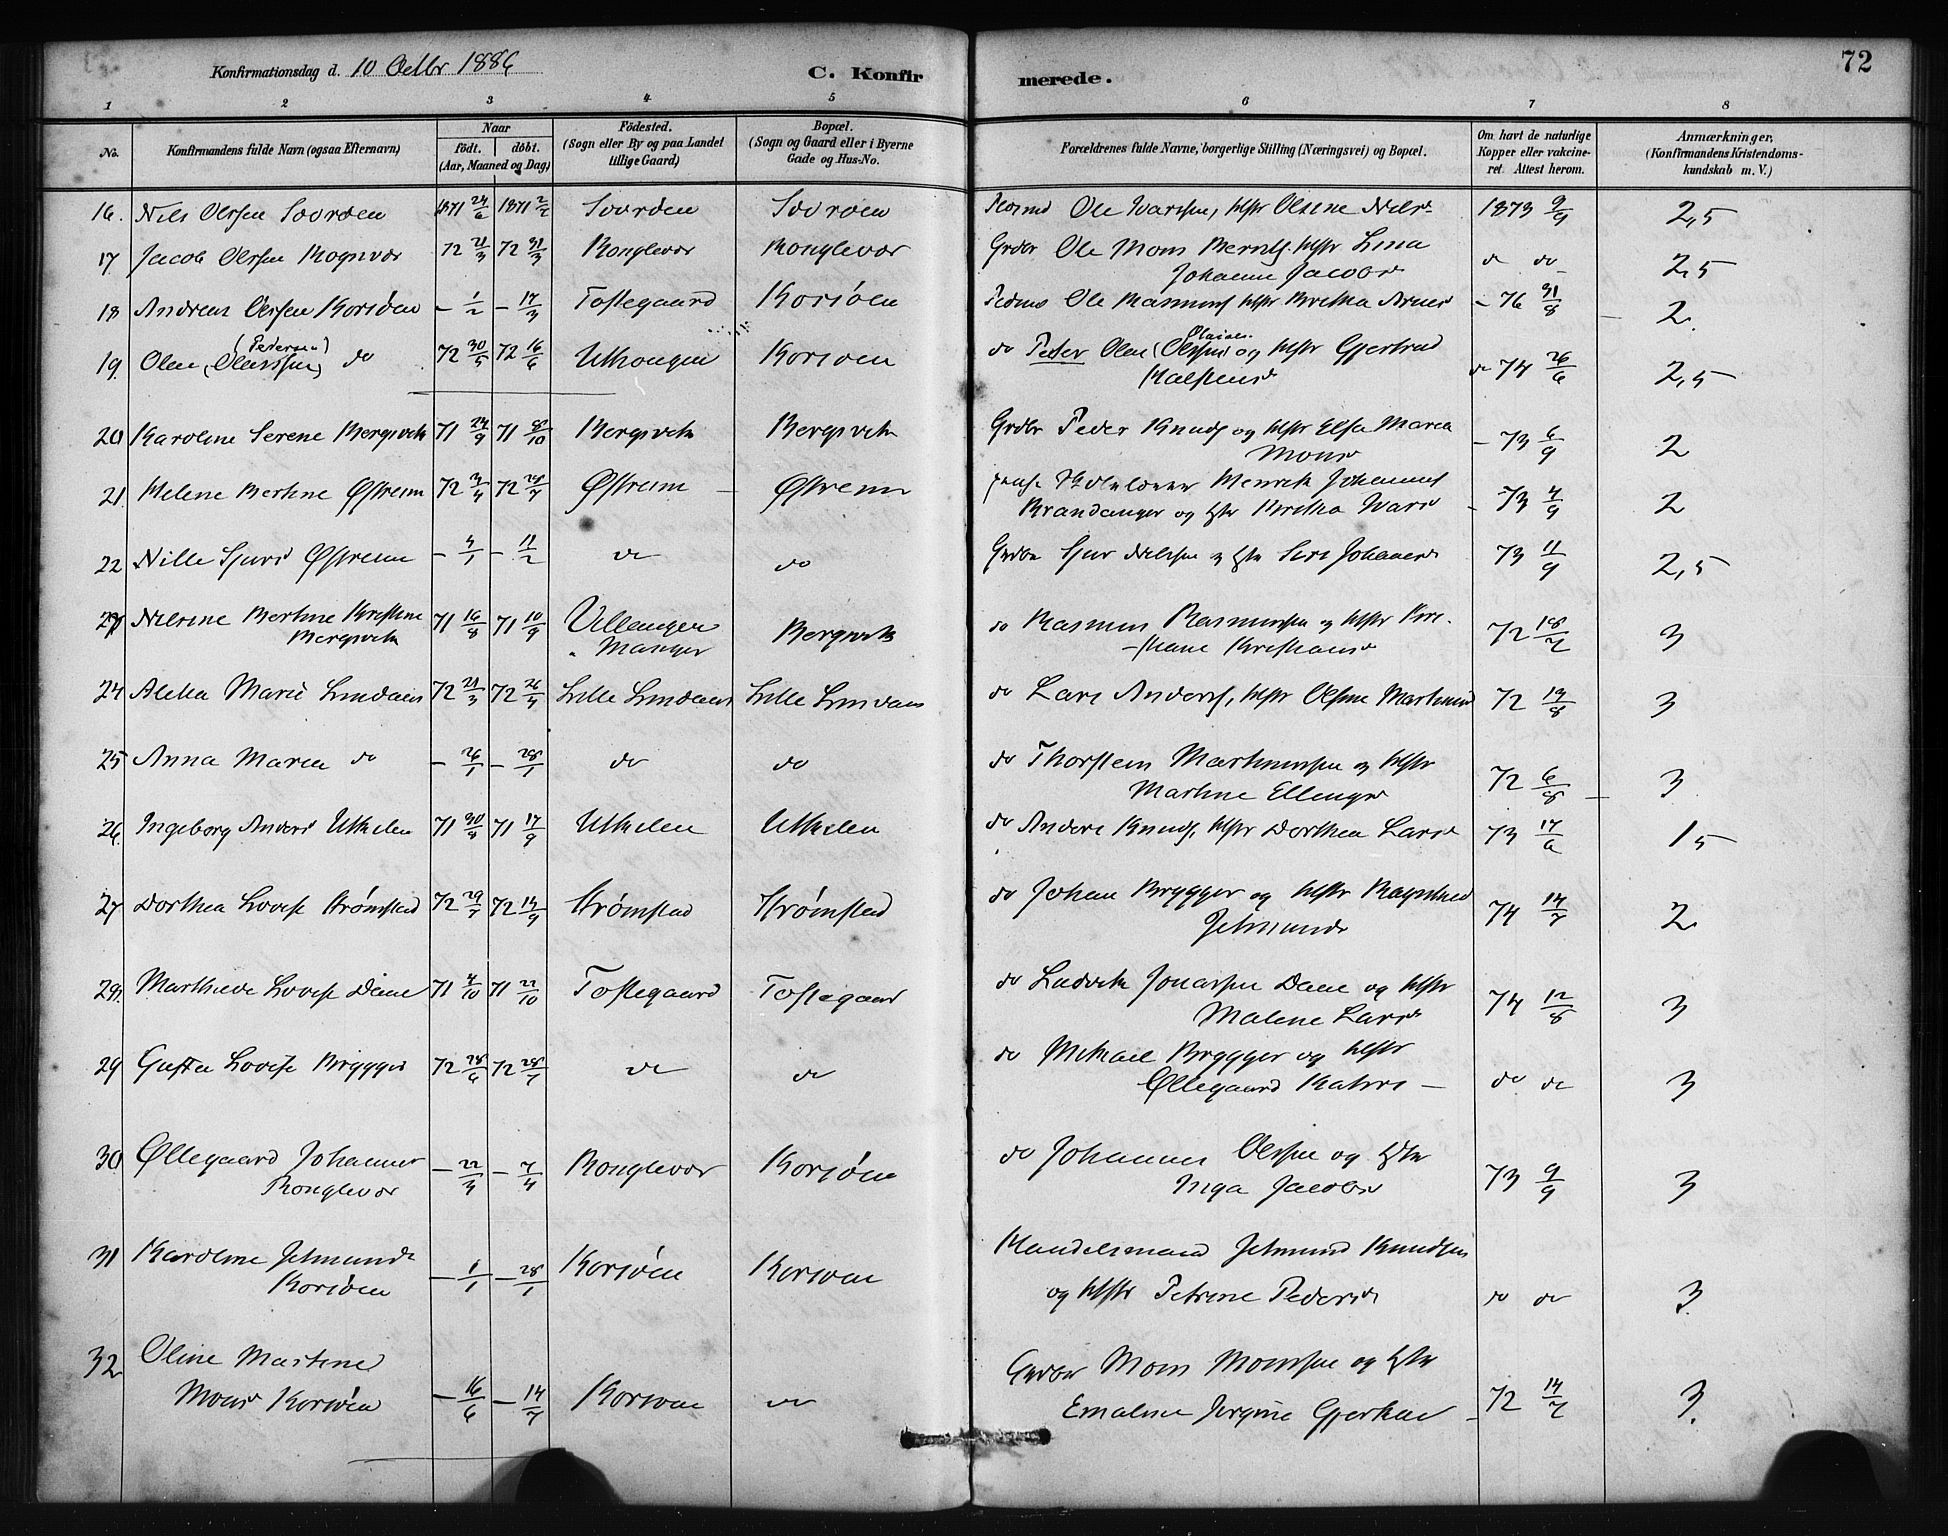 72
Konfirmationsdag d. 10 Octbr 1886
C. Konfirmerede.
1 2 3 4 5 6 7 8
No.
Konfirmandens fulde Navn (ogsaa Efternavn)
Naar
født. døbt.
(Aar, Maaned og Dag)
Fødested.
(Sogn eller By og paa Landet
tillige Gaard)
Bopæl.
(Sogn og Gaard eller i Byerne
Gade og Hus-No.
Forældrenes fulde Navne, borgerlige Stilling (Næringsvei) og Bopæl.
Om havt de naturlige
Kopper eller vakcine-
ret. Attest herom.
Anmærkninger,
(Konfirmandens Kristendoms-
kundskab m. V.)
16. Nils Olssen 1871 24/6 1871 2/7 Ole Ivarssen, Hstr Olsene Nilsd 1873 9/9 2,5
17 Jacob Olssen 72 21/3 72 31/3 Ronglevær Ronglevær Grdbr Ole Mons Hstr Lina
Johanne Jacobsd do do 2,5
18 Andreas Olssen Korsøen - 1/2 - 17/3 Toftegaard Korsøen Ole Rasmuss Hstr Brithe - 76 31/8 2.
(Pedersen)
19. Olai do 72 30/5 72 16/6 Korsøen do Peder Olai (Olssen) og Hstr Gjertrud
do 74 26/6 2,5
20 Karoline Serene Bergsvik 71 24/9 71 8/10 Bergsvik Bergsvik Grdbr Peder Knuds og Hstr Elsa Maria
Monsd - 73 6/9 2
21. Helene Bertine Østreim 72 72 28/7 Østreim Østreim Henrik Johannes
Brandanger og Hstr Brithe Ivarsd - 73 4/9 2
22 Nille Sjursd Østreim - - 11/2 do do Grdbr Sjur Nilssen og Hstr Siri Johannesd 73 11/9 2,5
23 Nilsine Bertine Kristine
Bergsvik 71 16/8 71 10/9 Villanger
Manger Bergsvik do Rasmus Rasmussen og Hstr Kri-
stiane Kristiansd 72 18/7 3
24 Marie Lindaas 72 21/3 72 Lille Lindaas Lille Lindaas do Lars Anders, Hstr Olsine Martinusd 72 19/8 3
25 Anna Maria do - 26/1 - 28/1 do do do Thorstein Martinussen og Hstr
Martine Ellingsd 72 6/8 3.
26. Ingeborg Andersd Utkilen 71 71 17/9 Utkilen Utkilen do Anders Knuds, Hstr Dorthea Larsd 73 17/6 1 5
27 Dorthea Lovise Strømstad 72 29/7 72 Strømstad Strømstad do Johan Brygger og Hstr Ragnhild
Jetmundsd 74 14/7 2
28. Lovise Daae 71 4/10 71 22/10 Toftegaard Toftegaard do Ludvik Jonassen Daae og Hstr
Malene Larsd 74 12/8 3
29 Gusta Lovise Brygger 72 28/6 72 28/7 do do do Mikael Brygger og Hstr
Øllegaard do do 3
30 Øllegaard Johannes
Ronglevær - 22/3 - 7/4 Ronglevær Korsøen do Johannes Olssen og Hstr
Inga Jacobsd 73 9/9 3
31 Karoline Jetmundsd
Korsøen - 1/1 - 28/1 Korsøen Korsøen Handelsmand Jetmund Knudsen
og Hstr Petrine Pedersd do do 3.
32 Oline Martine
Monsd Korsøen - 16/6 - 14/7 Korsøen do Grdbr Mons Monssen og Hstr
Emaline Jergine 72 14/7 3.